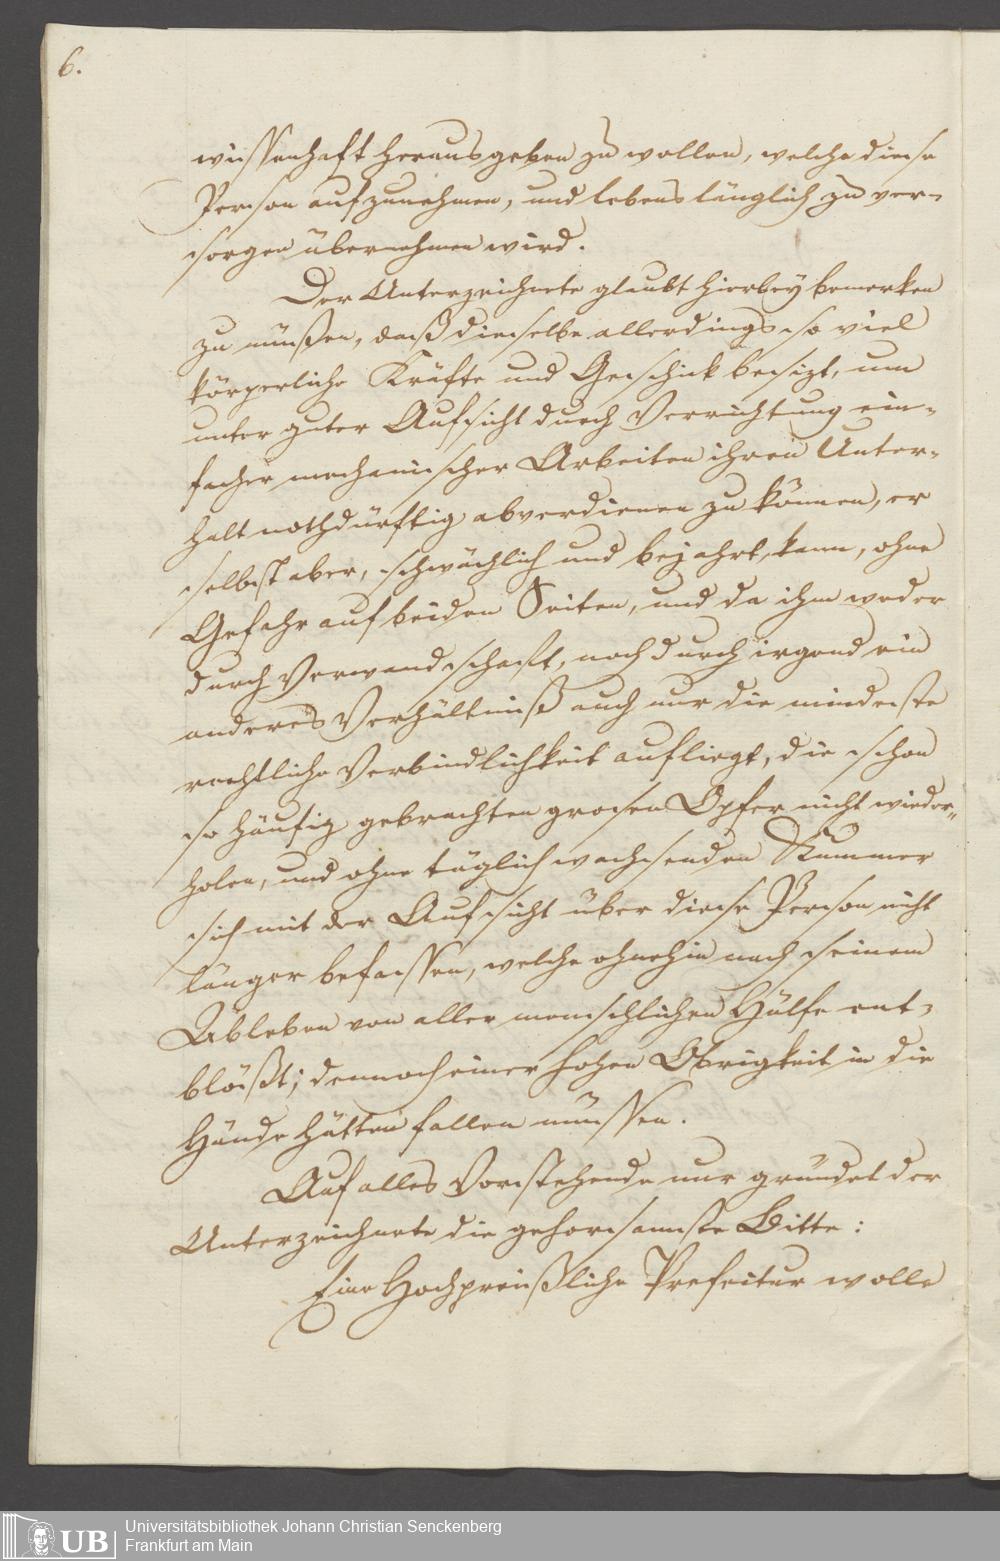 6.
wissenhaft herausgeben zu wollen, welche diese
Person aufzunehmen, und lebenslänglich zu ver-
sorgen übernehmen wird.
Der Unterzeichnete glaubt hierbey bemerken
zu müßen, daß dieselbe allerdings so viel
körperliche Kräfte und Geschick besizt, um
unter guter Aufsicht durch Verrichtung ein-
facher mechanischer Arbeiten ihren Unter-
halt nothdürftig abverdienen zu können, er
selbst aber, schwächlich und bejahrt, kann, ohne
Gefahr auf beiden Seiten, und da ihm weder
durch Verwandschaft, noch durch irgend ein
anderes Verhältniß auch nur die mindeste
rechtliche Verbindlichkeit aufliegt, die schon
so häufig gebrachten grosen Opfer nicht wieder-
holen, und ohne täglich wachsenden Kummer
sich mit der Aufsicht über diese Person nicht
länger befassen, welche ohnehin nach seinem
Ableben von aller menschlichen Hülfe ent-
blößt; dennoch einer hohen Obrigkeit in die
Hände hätten fallen müssen.
Auf alles Vorstehende nur gründet der
Unterzeichnete die gehorsamste Bitte:
Eine Hochpreußliche Prefectur wolle
UB
Universitätsbibliothek Johann Christian Senckenberg
Frankfurt am Main